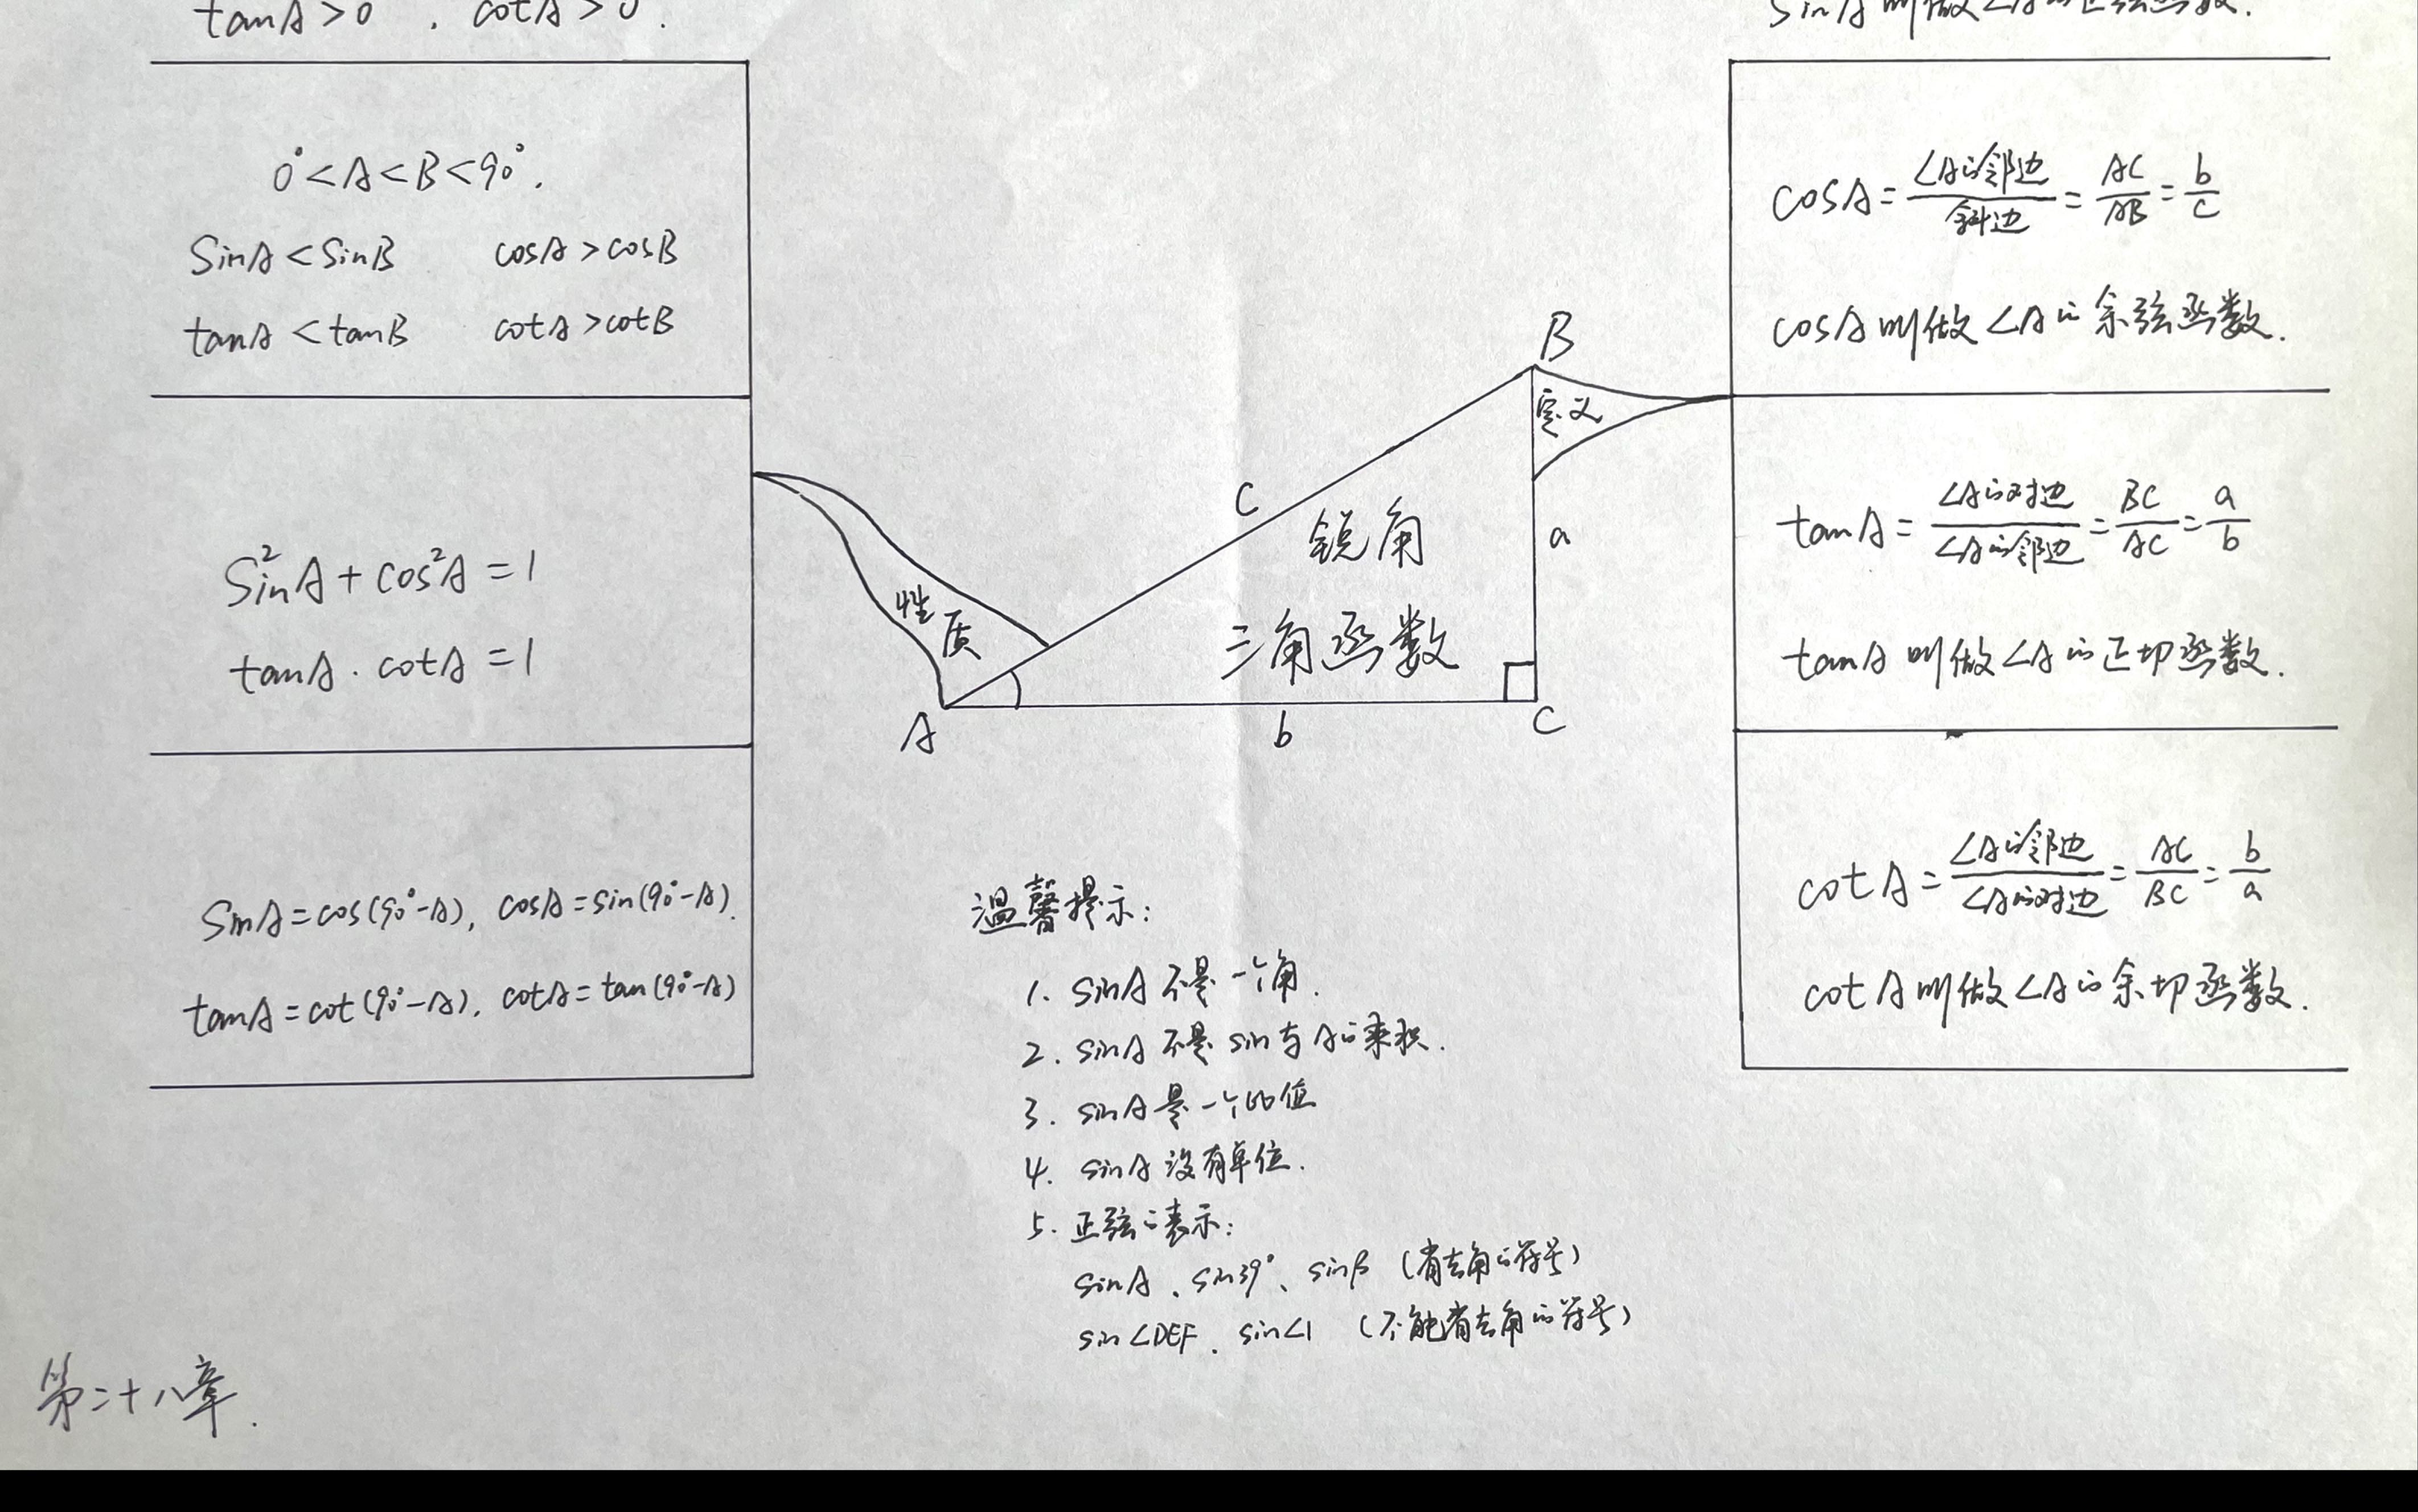 tanA>0 , cotA>0.
0°<A<B<90°.
SinA<SinB cosA>cosB
tanA<tanB cotA>cotB
Sin²A+cos²A=1
tanA·cotA=1
SinA=cos(90°-A), cosA=sin(90°-A).
tanA=cot(90°-A), cotA=tan(90°-A)
性质
A
B
C
c
a
b
锐角
三角函数
定义
SinA叫做∠A的正弦函数.
cosA=∠A的邻边/斜边=AC/AB=b/c
cosA叫做∠A的余弦函数.
tanA=∠A的对边/∠A的邻边=BC/AC=a/b
tanA叫做∠A的正切函数.
cotA=∠A的邻边/∠A的对边=AC/BC=b/a
cotA叫做∠A的余切函数.
温馨提示:
1. sinA不是一个角.
2. sinA不是sin与A的乘积.
3. sinA是一个比值
4. sinA没有单位.
5. 正弦的表示:
sinA、sin39°、sinβ (省去角的符号)
sin∠DEF、sin∠1 (不能省去角的符号)
第二十八章.